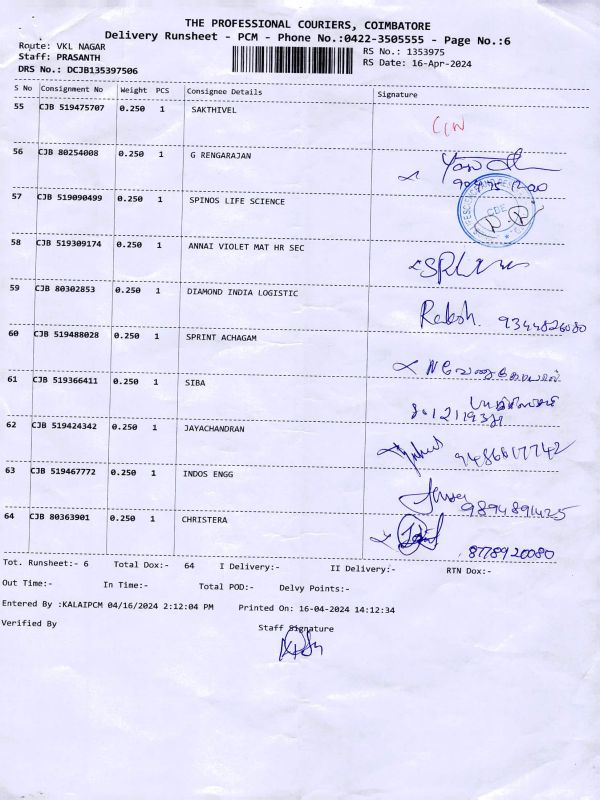 THE PROFESSIONAL COURIERS, COIMBATORE
Delivery Runsheet - PCM - Phone No.:0422-3505555 - Page No.:6
Route: VKL NAGAR
RS No.: 1353975
Staff: PRASANTH
RS Date: 16-Apr-2024
DRS No.: DCJB135397506
S No Consignment No Weight PCS Consignee Details Signature
55 CJB 519475707 0.250 1 SAKTHIVEL
56 CJB 80254008 0.250 1 G RENGARAJAN
57 CJB 519090499 0.250 1 SPINOS LIFE SCIENCE
CDE
58 CJB 519309174 0.250 1 ANNAI VIOLET MAT HR SEC
59 CJB 80302853 0.250 1 DIAMOND INDIA LOGISTIC
9344826080
60 CJB 519488028 0.250 1 SPRINT ACHAGAM
61 CJB 519366411 0.250 1 SIBA
62 CJB 519424342 0.250 1 JAYACHANDRAN
9486617742
63 CJB 519467772 0.250 1 INDOS ENGG
9894891425
64 CJB 80363901 0.250 1 CHRISTERA
8778920080
Tot. Runsheet:- 6 Total Dox:- 64 I Delivery:- II Delivery:- RTN Dox:-
Out Time:- In Time:- Total POD:- Delvy Points:-
Entered By :KALAIPCM 04/16/2024 2:12:04 PM Printed On: 16-04-2024 14:12:34
Verified By Staff Signature